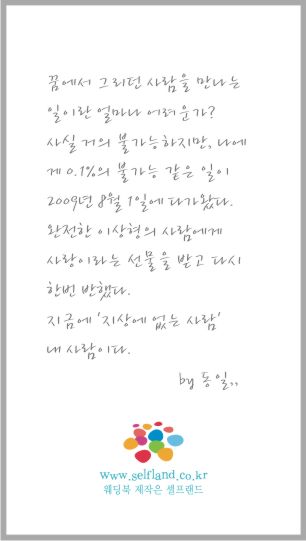 꿈에서 그리던 사람을 만나는
일이란 얼마나 어려운가?
사실 거의 불가능하지만, 나에
게 0.1%의 불가능 같은 일이
2009년 8월 1일에 다가왔다.
완전한 이상형의 사람에게
사랑이라는 선물을 받고 다시
한번 반했다.
지금에 '지상에 없는 사람'
내 사람이다.
by 동일,,
www.selfland.co.kr
웨딩북 제작은 셀프랜드